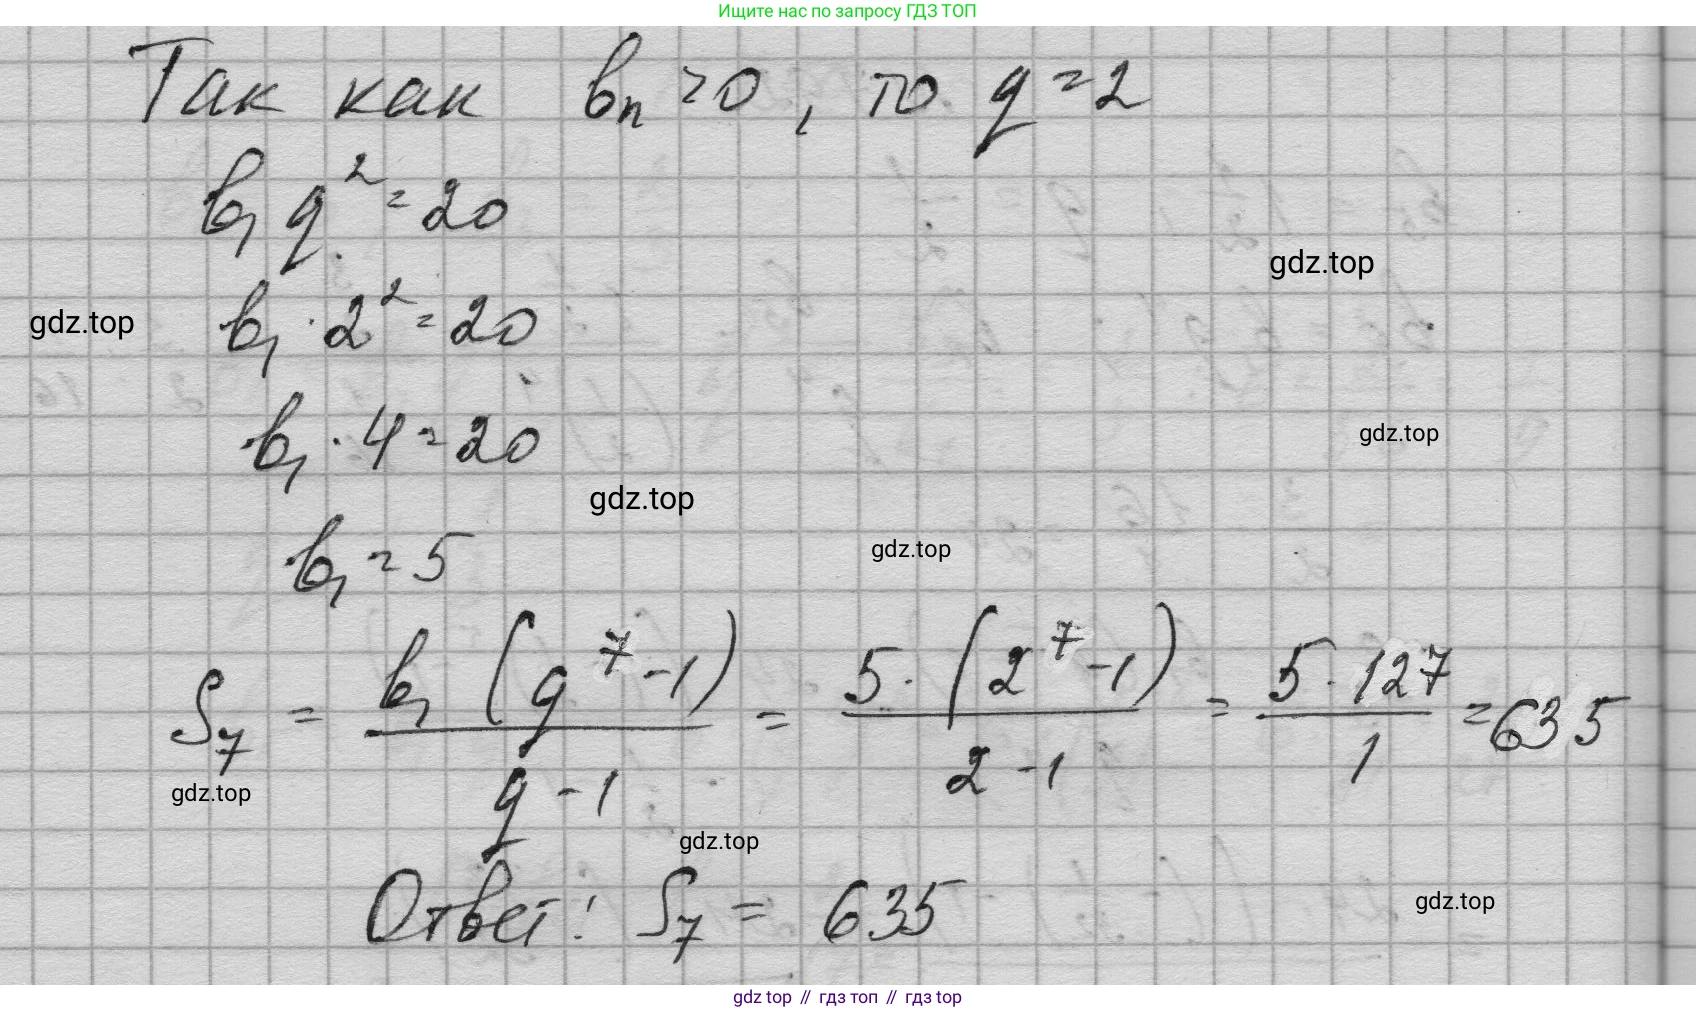 Ищите нас по запросу ГДЗ ТОП
Так как bₙ > 0, то q = 2
b₁ q² = 20
gdz.top
b₁ · 2² = 20
gdz.top
b₁ · 4 = 20
gdz.top
gdz.top
b₁ = 5
gdz.top
S₇ = b₁ (q⁷ - 1) / (q - 1) = 5 · (2⁷ - 1) / (2 - 1) = 5 · 127 / 1 = 635
gdz.top
gdz.top
Ответ: S₇ = 635
gdz.top
gdz top // гдз топ // гдз top